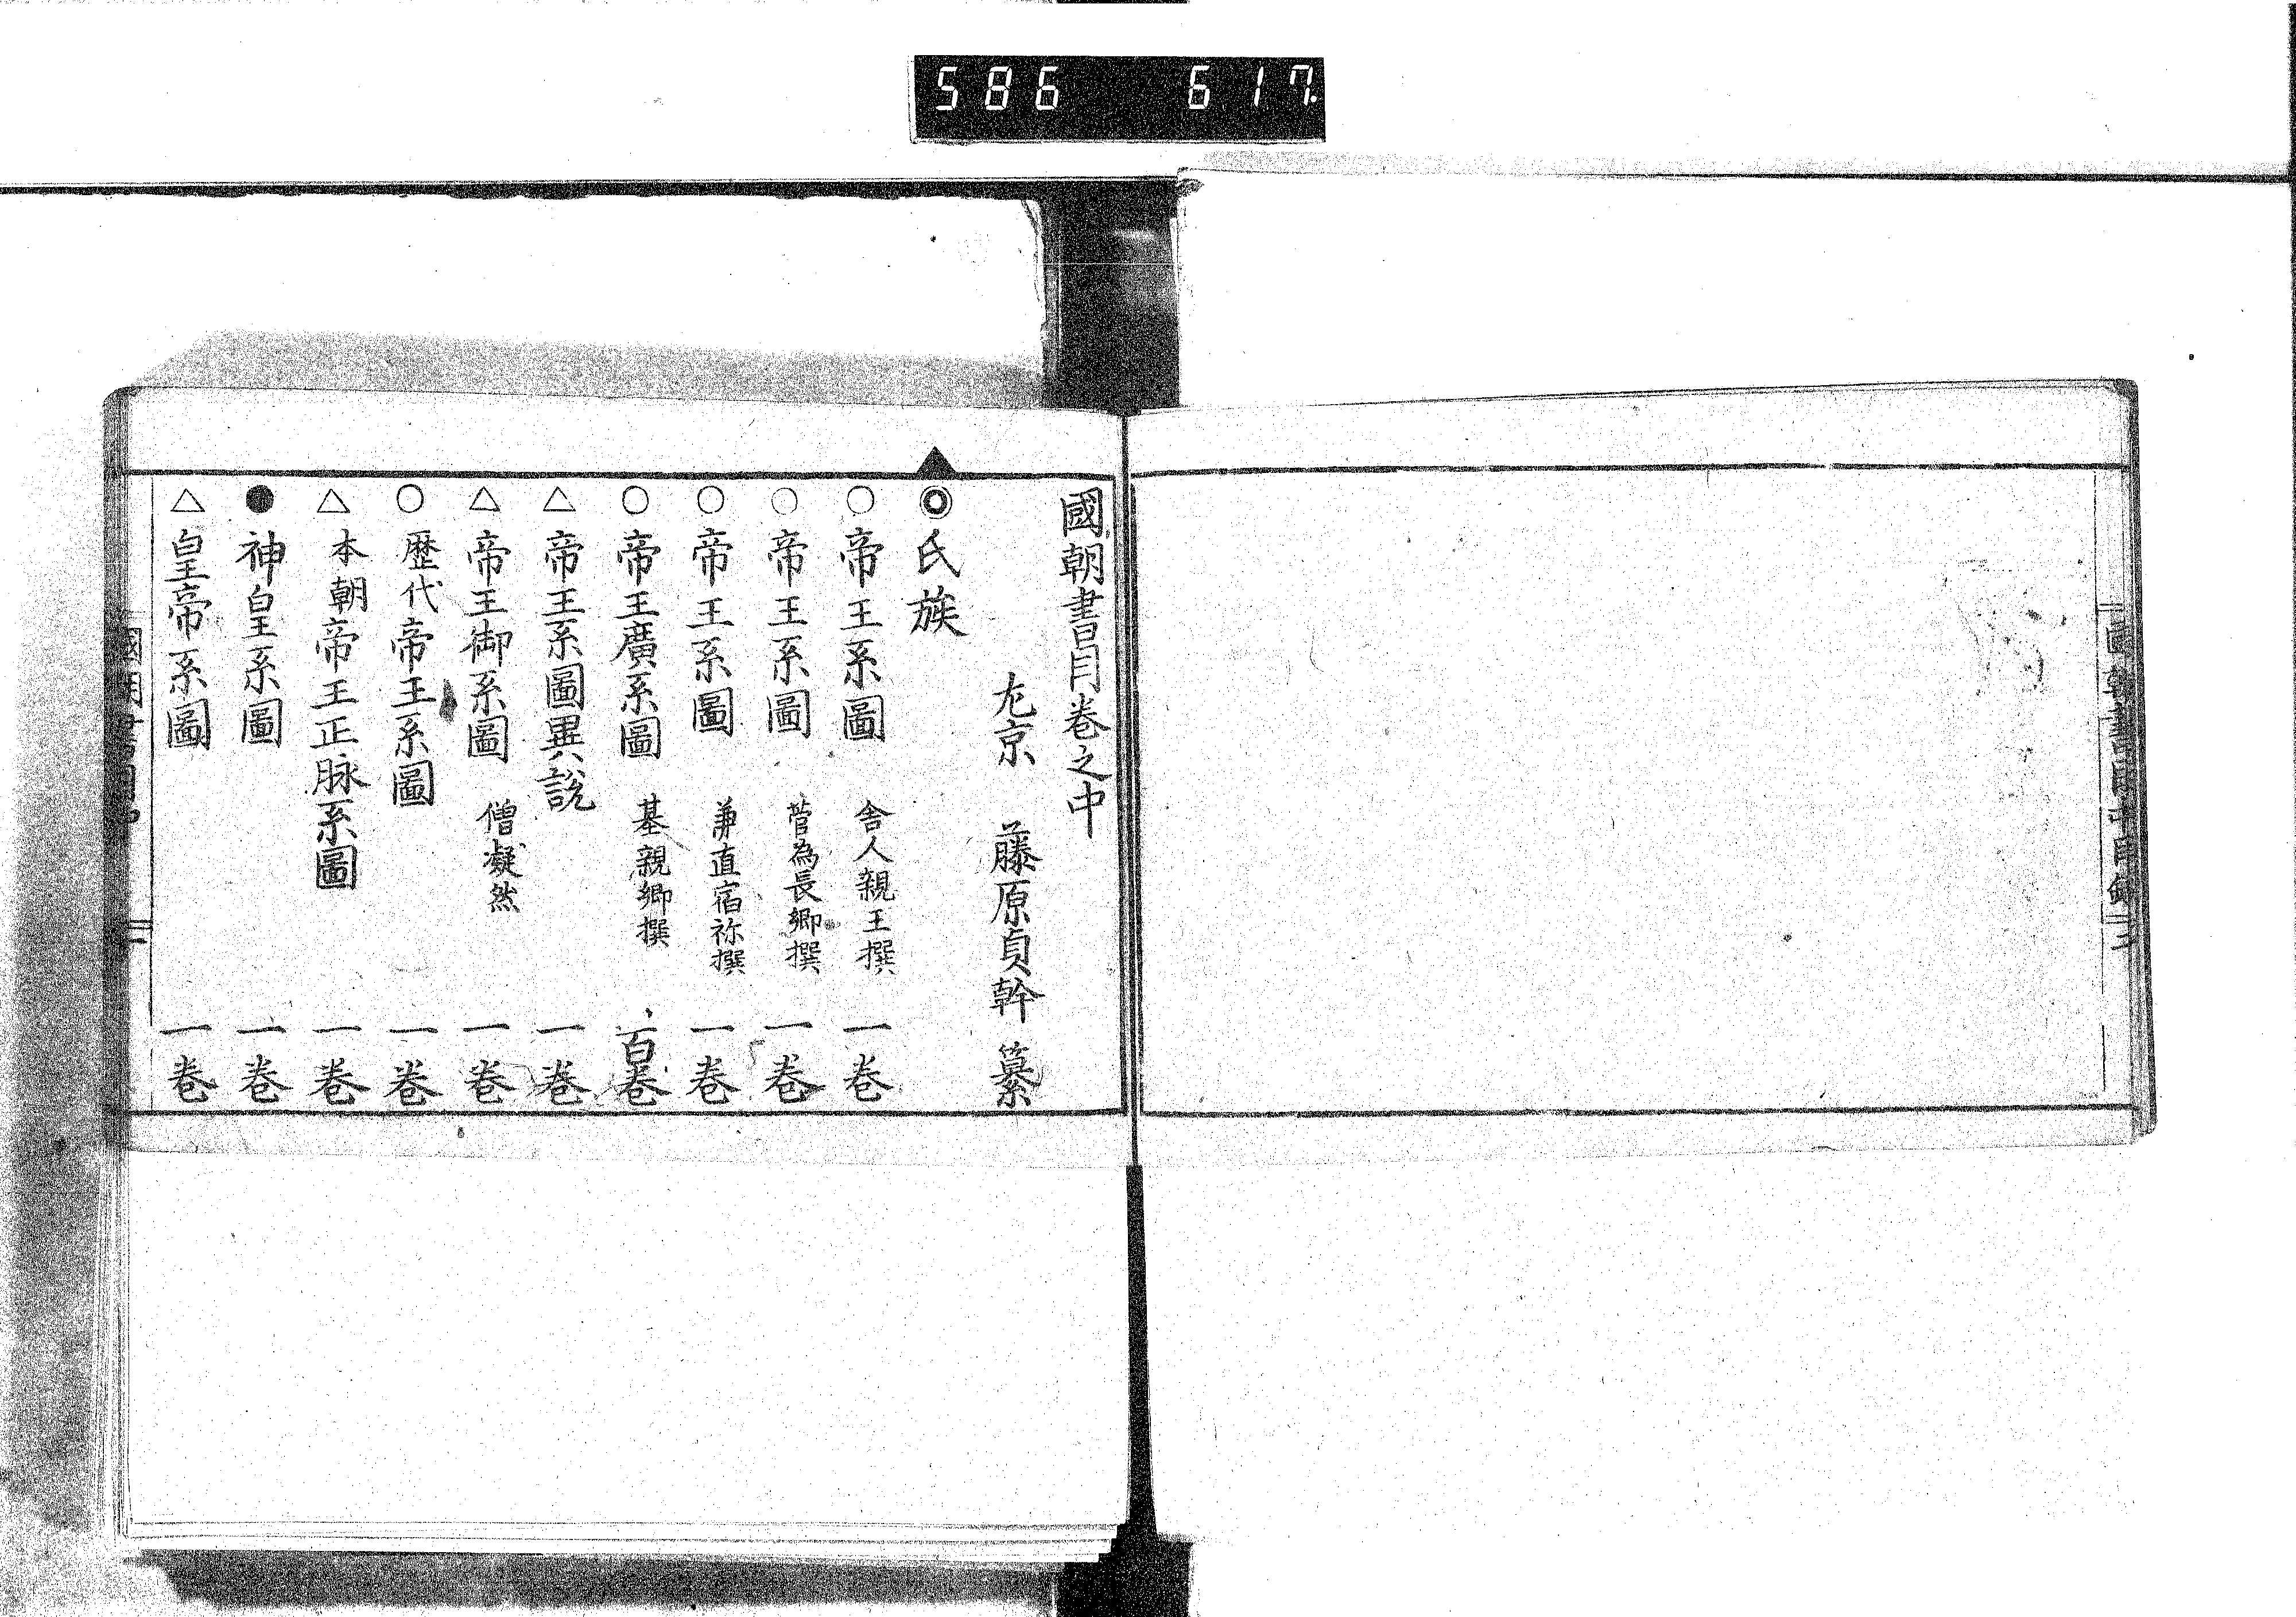 586 617
國朝書目卷之中
左京 藤原貞幹 纂
◎氏族
○帝王系圖 舎人親王撰 一卷
○帝王系圖 菅為長卿撰 一卷
○帝王系圖 兼直宿祢撰 一卷
○帝王廣系圖 基親卿撰 百卷
△帝王系圖異說 一卷
△帝王御系圖 僧凝然 一卷
○歷代帝王系圖 一卷
△本朝帝王正脉系圖 一卷
●神皇系圖 一卷
△皇帝系圖 一卷